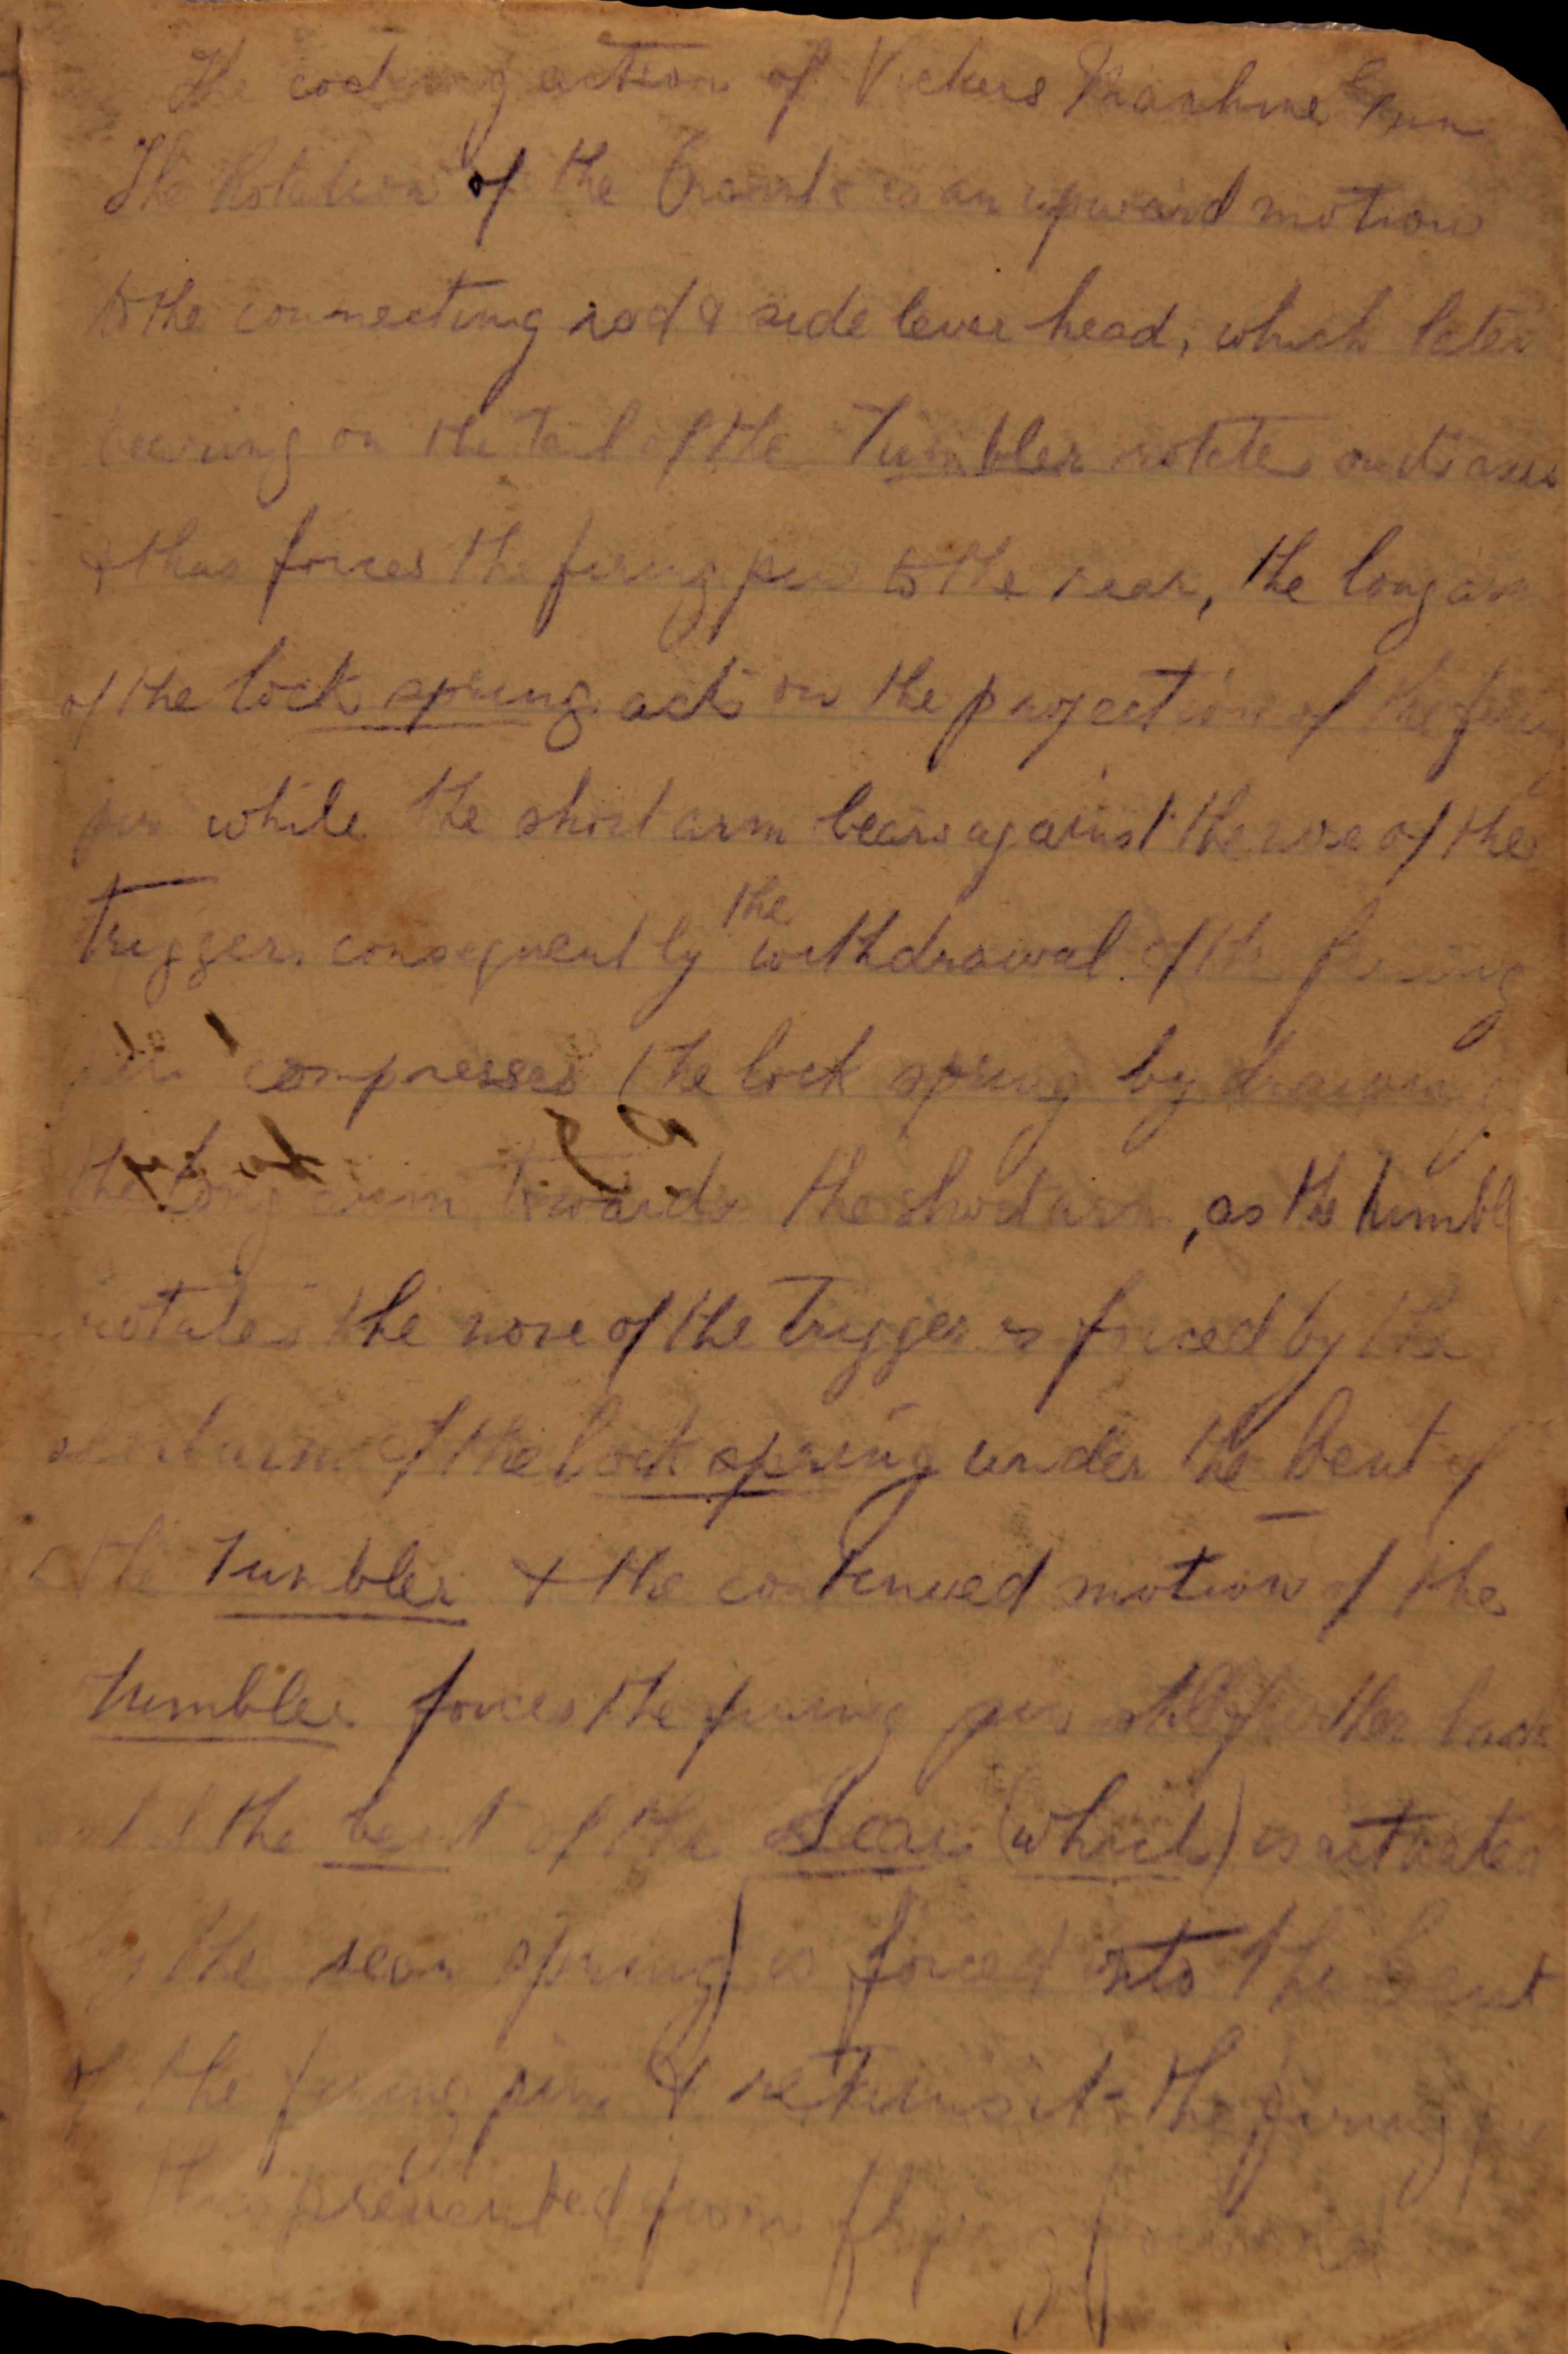 The cocking action of Vickers Machine Gun
The Rotation of the Crank is an upward motion
to the connecting rod & side lever head, which later
bearing on the tail of the Tumbler rotates on its axis
& thus forces the firing pin to the rear, the long arm
of the lock spring acts on the projection of the firing
pin while the short arm bears against the nose of the
Trigger. consequently the withdrawal of the firing
pin compresses the lock spring by drawing
the long arm towards the short arm, as the tumbl
rotates the nose of the Trigger is forced by the
short arm of the lock spring under the bent of
the Tumbler & the continued motion of the
tumbler forces the firing pin still further back
until the bent of the Sear (which) is actuated
by the sear spring) is forced into the bent
of the firing pin & retains it. the firing
thus prevented from flying forward